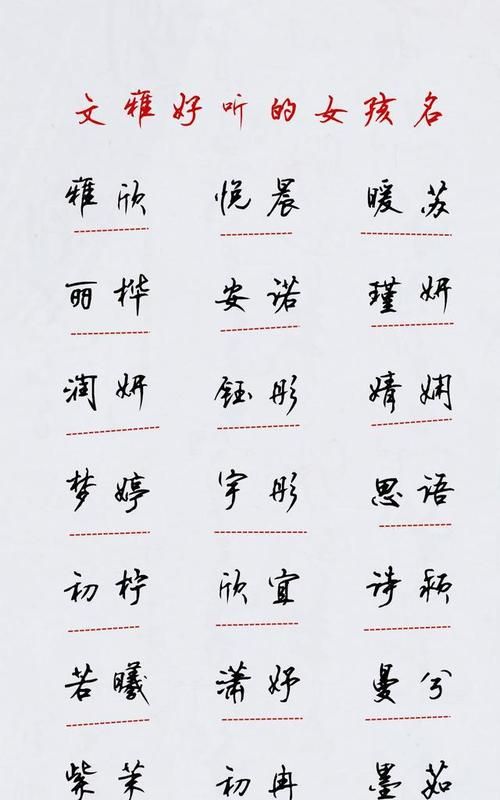 文雅好听的女孩名
雅欣 悦晨 暖苏
丽桦 安诺 瑾妍
润妍 钰彤 婧娴
梦婷 宇彤 思语
初柠 欣宜 诗颖
若曦 潇妤 曼兮
紫茉 初冉 墨茹